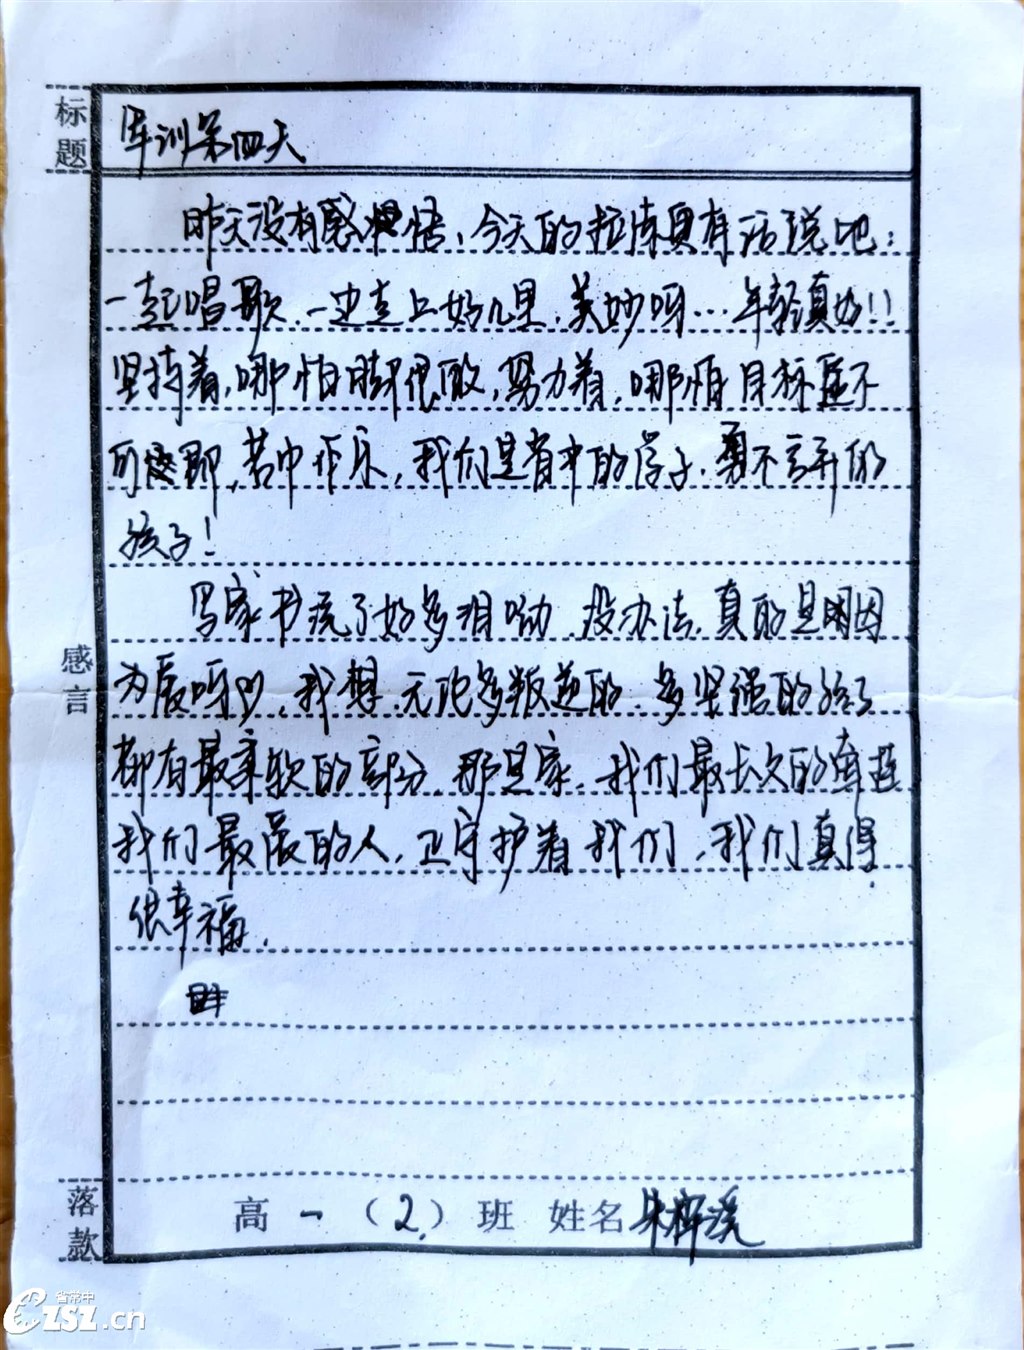 标题
军训第四天
昨天没有感悟，今天的拉练真有话说吧：
一起唱歌，一边走上好几里，美妙呀…年轻真好！！
坚持着，哪怕脚很酸，努力着，哪怕目标遥不
可及即，苦中作乐，我们是省中的学子，勇不言弃的
孩子！
写家书流了好多泪呦，没办法，真的是因
为爱呀，我想，无论多叛逆的，多坚强的孩子
都有最柔软的部分，那是家，我们最长久的牵挂
我们最爱的人，正守护着我们，我们真得
很幸福。
感言
落款
高一（2）班 姓名朱梓溪
省常中
CZSZ.cn